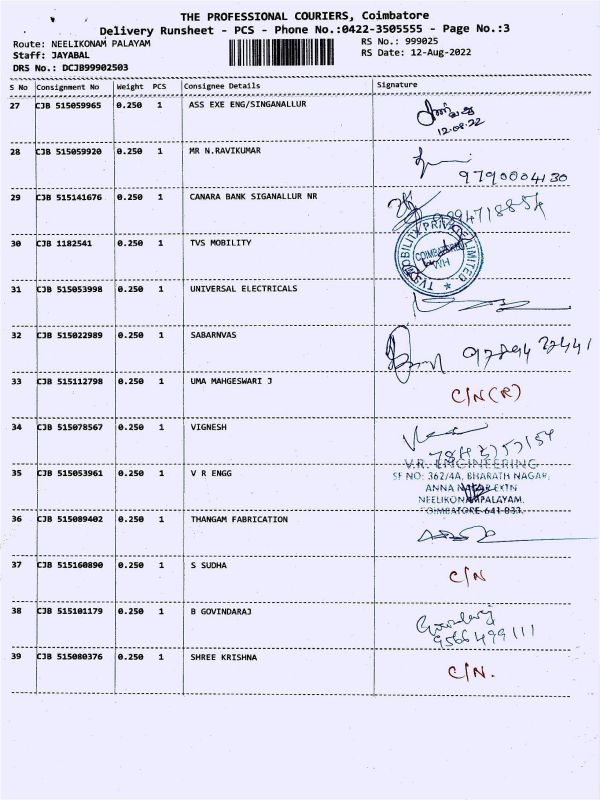 THE PROFESSIONAL COURIERS, Coimbatore
Delivery Runsheet - PCS - Phone No.:0422-3505555 - Page No.:3
Route: NEELIKONAM PALAYAM
RS No.: 999025
Staff: JAYABAL
RS Date: 12-Aug-2022
DRS No.: DCJB99902503
S No Consignment No Weight PCS Consignee Details Signature
27 CJB 515059965 0.250 1 ASS EXE ENG/SINGANALLUR
12.08.22
28 CJB 515059920 0.250 1 MR N.RAVIKUMAR
9790004130
29 CJB 515141676 0.250 1 CANARA BANK SIGANALLUR NR
30 CJB 1182541 0.250 1 TVS MOBILITY
TVS MOBILITY PRIVATE LIMITED
COIMBATORE
WH
31 CJB 515053998 0.250 1 UNIVERSAL ELECTRICALS
32 CJB 515022989 0.250 1 SABARNVAS
33 CJB 515112798 0.250 1 UMA MAHGESWARI J
C/N(R)
34 CJB 515078567 0.250 1 VIGNESH
35 CJB 515053961 0.250 1 V R ENGG
V.R. ENGINEERING
SF NO: 362/4A, BHARATH NAGAR,
ANNA NAGAR EXTN
NEELIKONAMPALAYAM,
COIMBATORE-641 033.
36 CJB 515089402 0.250 1 THANGAM FABRICATION
37 CJB 515160890 0.250 1 S SUDHA C/N
38 CJB 515101179 0.250 1 B GOVINDARAJ
Govindaraj
9566499111
39 CJB 515080376 0.250 1 SHREE KRISHNA
C/N.